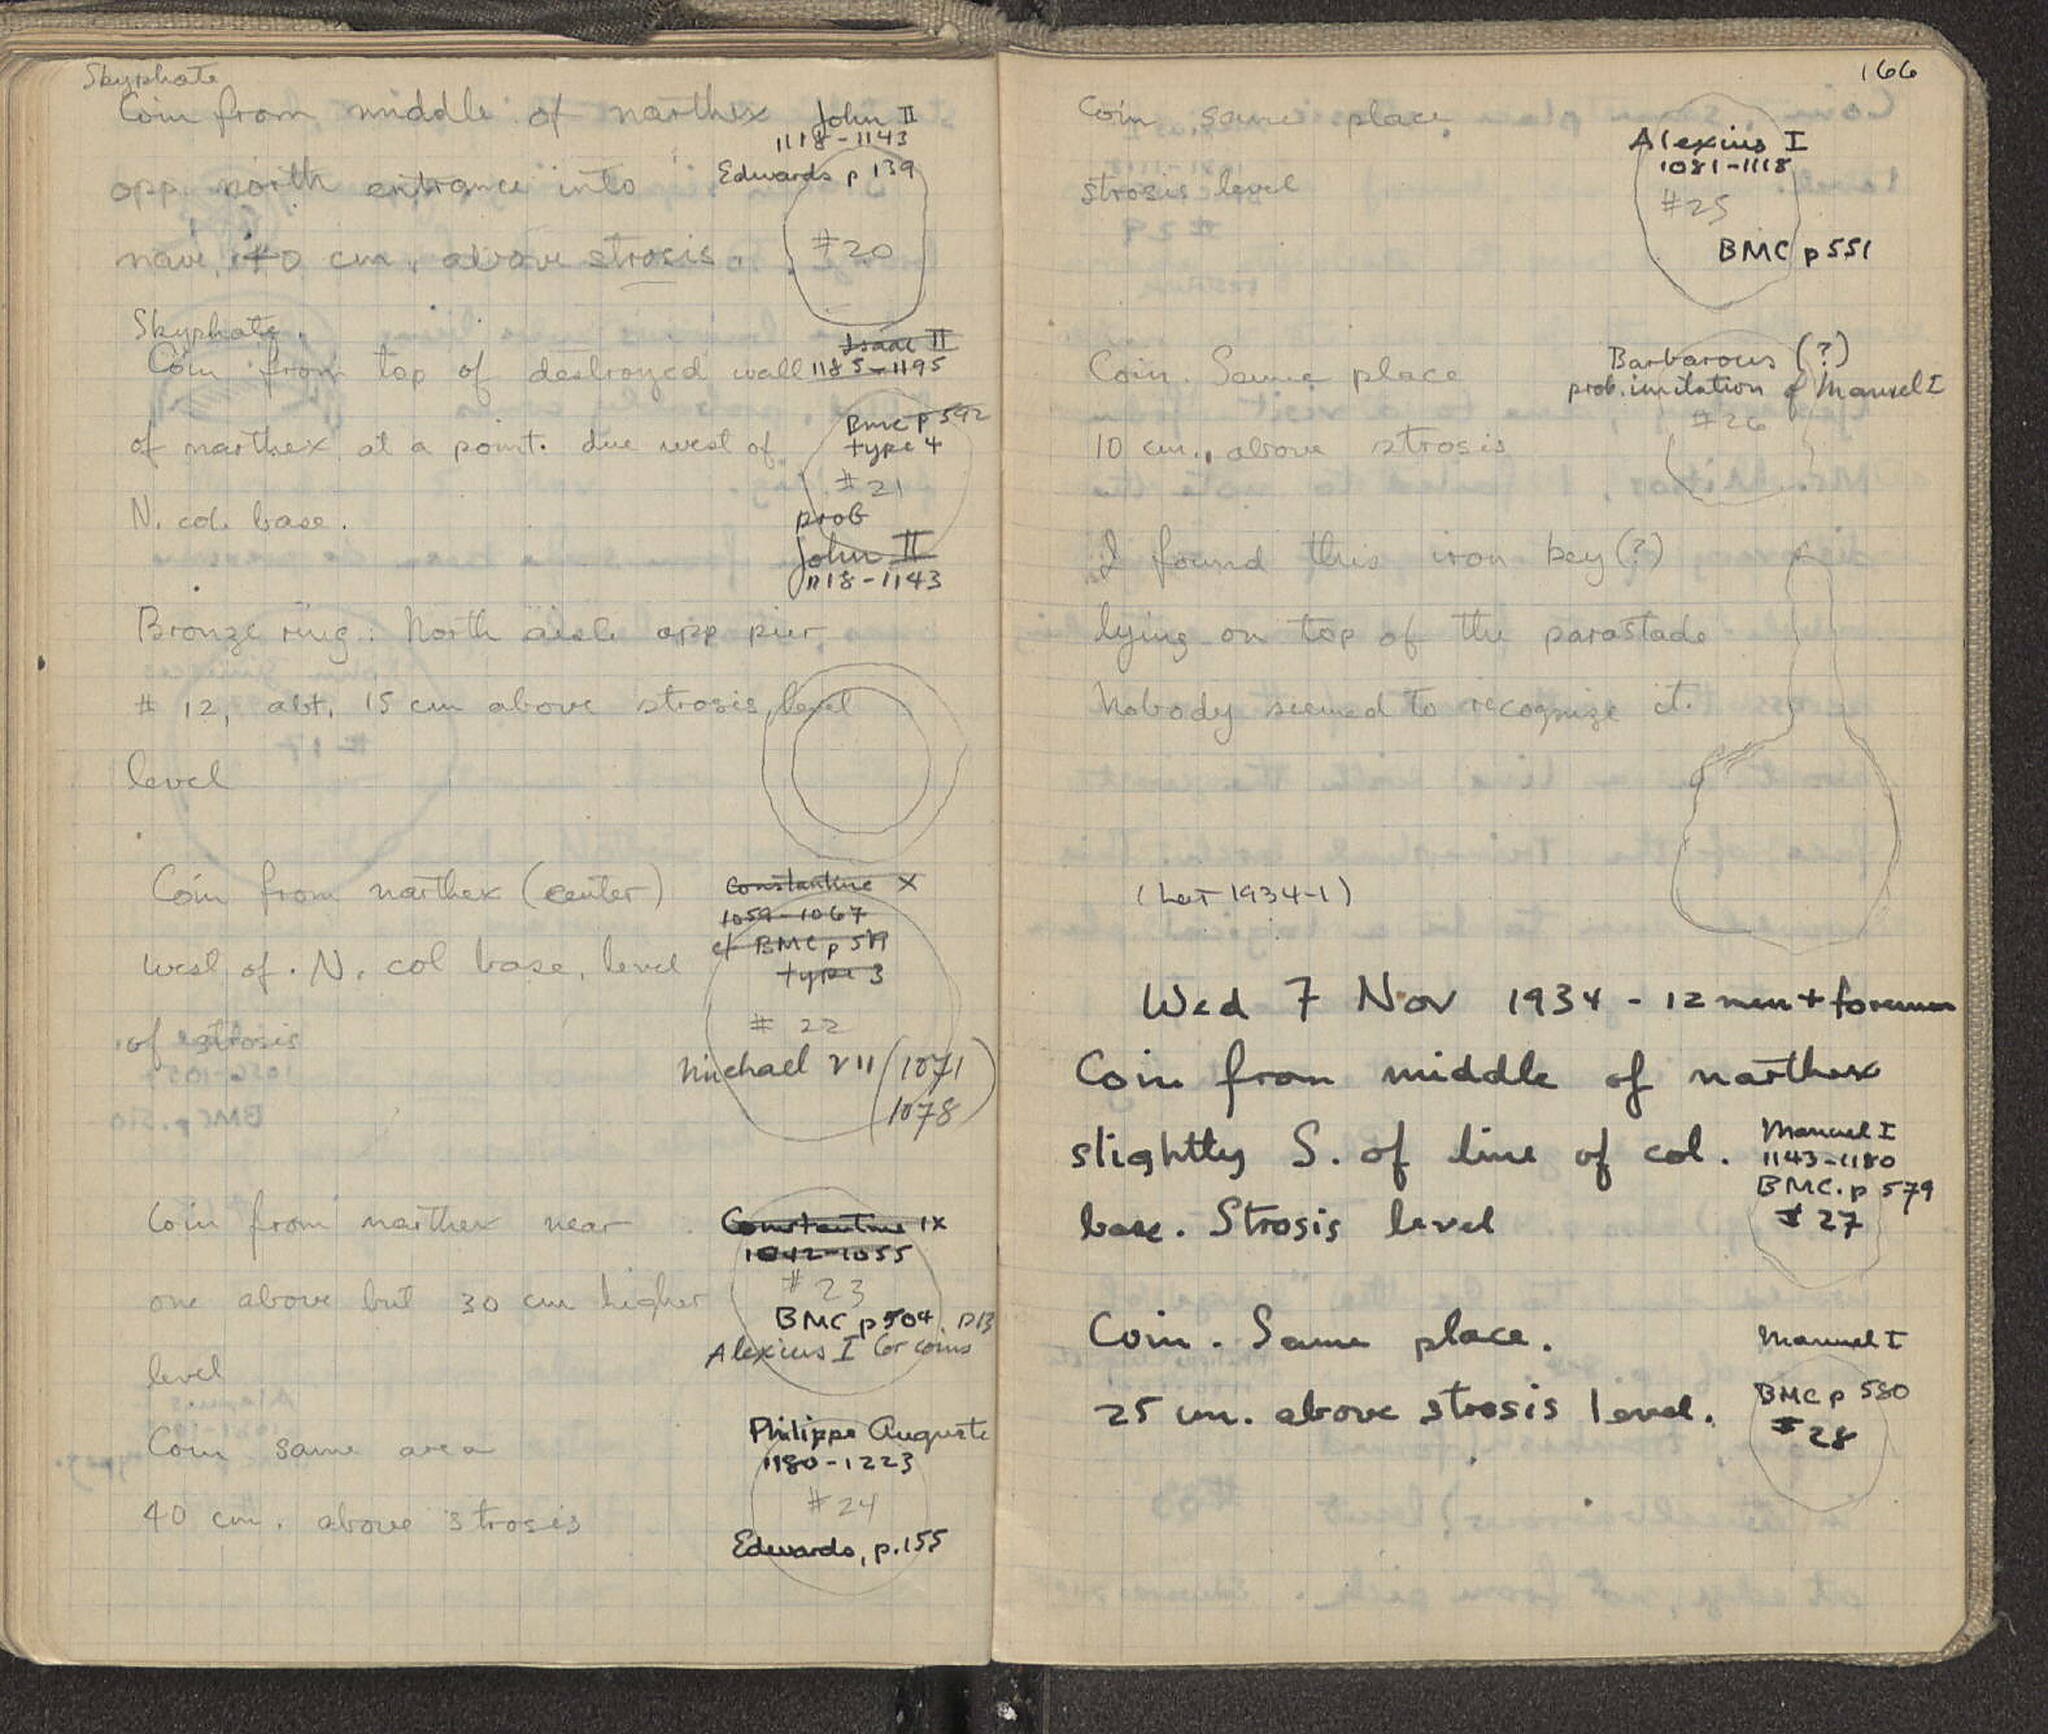 Skyphate
Coin from middle of narthex
John II
1118-1143
Edwards p 139
opp. north entrance into
nave, 40 cm. above strosis.
#20
Skyphate.
Coin from top of destroyed wall
Isaac II
1185-1195
BMC p 592
type 4
of narthex at a point due west of
#21
N. col. base.
prob
John II
1118-1143
Bronze ring: North aisle opp pier
# 12, abt. 15 cm above strosis level
level
Coin from narthex (center)
Constantine X
1059-1067
cf BMC p
type 3
west of N. col base, level
# 22
of strosis
Michael VII (1071
1078)
Coin from narthex near
Constantine IX
1042-1055
#23
one above but 30 cm higher
BMC p 504
Alexius I Cor coins
level
Coin same area
Philippe Auguste
1180-1223
#24
40 cm. above strosis
Edwards, p. 155
166
Coin same place
Alexius I
1081-1118
strosis level
#25
BMC p 551
Coin. Same place
Barbarous (?)
prob. imitation of Manuel I
#26
10 cm. above strosis
I found this iron key (?)
lying on top of the parastade
Nobody seemed to recognize it.
(Lot 1934-1)
Wed 7 Nov 1934 - 12 men + foreman
Coin from middle of narthex
slightly S. of line of col.
Manuel I
1143-1180
BMC. p 579
base. Strosis level
# 27
Coin. Same place.
Manuel I
25 cm. above strosis level.
BMC p 580
# 28